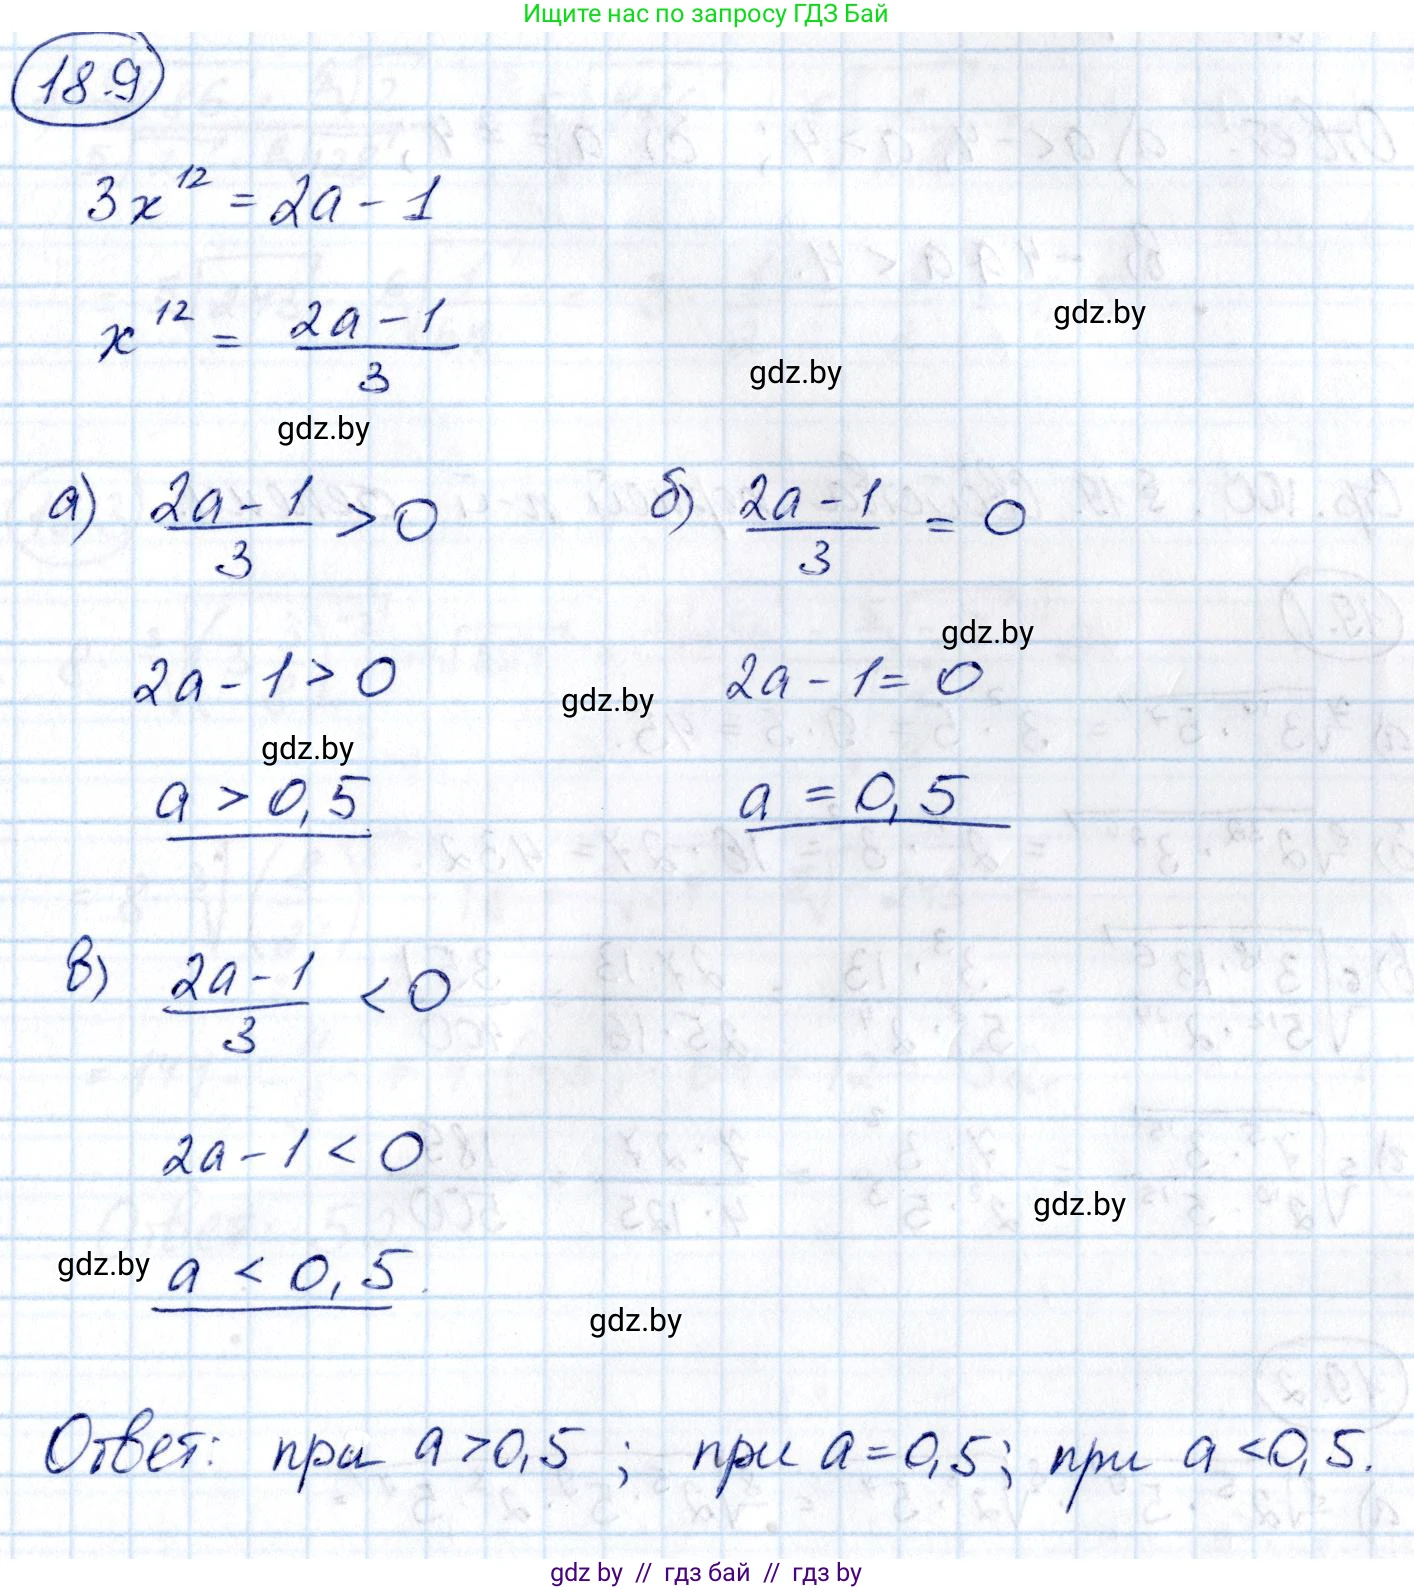 Ищите нас по запросу ГДЗ Бай
18.9
3x^12 = 2a - 1
x^12 = (2a - 1)/3
gdz.by
gdz.by
gdz.by
а) (2a - 1)/3 > 0
б) (2a - 1)/3 = 0
gdz.by
2a - 1 > 0
gdz.by
2a - 1 = 0
gdz.by
a > 0,5
a = 0,5
в) (2a - 1)/3 < 0
2a - 1 < 0
gdz.by
gdz.by
a < 0,5.
gdz.by
Ответ: при a > 0,5 ; при a = 0,5; при a < 0,5.
gdz.by // гдз бай // гдз by